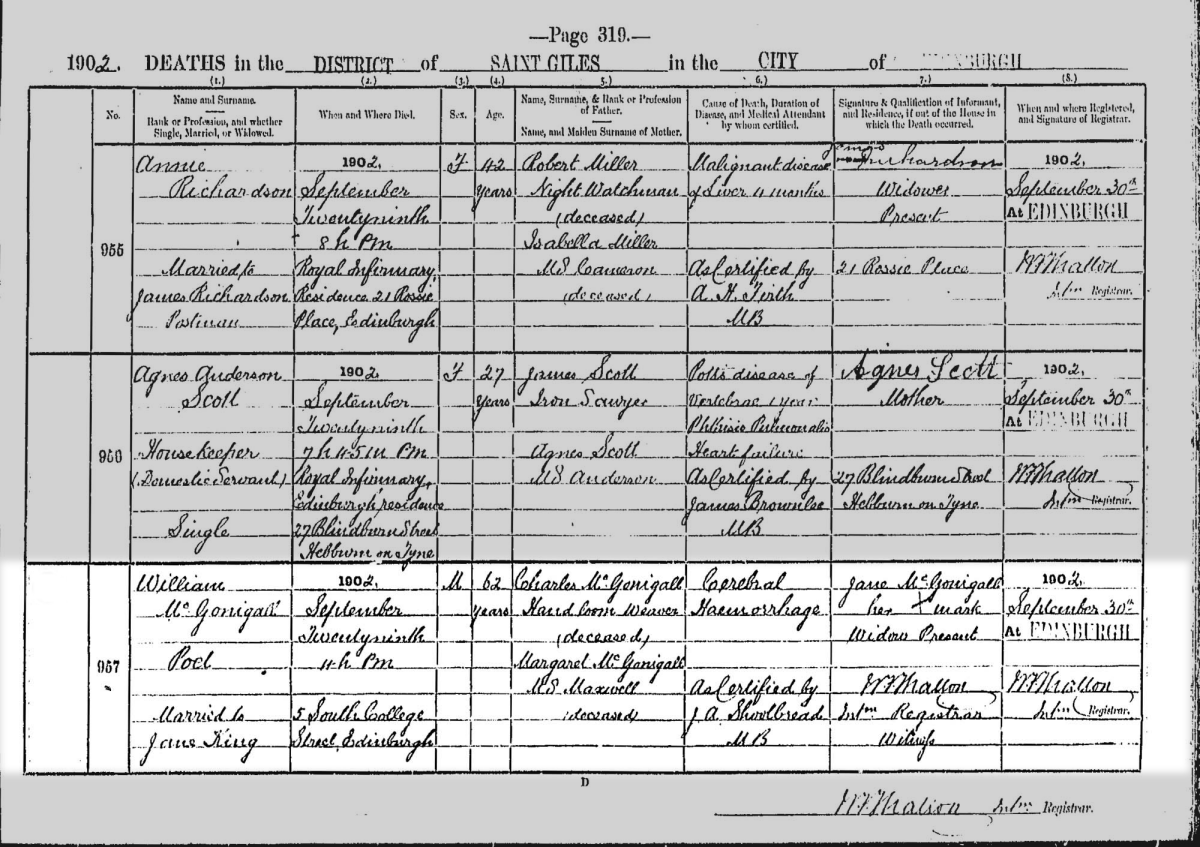 —Page 319.—
1902. DEATHS in the DISTRICT of SAINT GILES in the CITY of EDINBURGH
(1.) (2.) (3.) (4.) 5.) 6.) 7.) (8.)
No.
Name and Surname.
Rank or Profession, and whether
Single, Married, or Widowed.
When and Where Died.
Sex.
Age.
Name, Surname, & Rank or Profession
of Father.
Name, and Maiden Surname of Mother.
Cause of Death, Duration of
Disease, and Medical Attendant
by whom certified.
Signature & Qualification of Informant,
and Residence, if out of the House in
which the Death occurred.
When and where Registered,
and Signature of Registrar.
955
Annie
Richardson
Married to
James Richardson
Postman
1902,
September
Twentyninth
8h PM
Royal Infirmary,
Residence 21 Rossie
Place, Edinburgh
F
42
years
Robert Miller
Night Watchman
(deceased)
Isabella Miller
MS Cameron
(deceased)
Malignant disease
of Liver 4 months
As Certified by
A. H. Firth
MB
James Richardson
Widower
Present
21 Rossie Place
1902,
September 30th
At EDINBURGH
Intm Registrar.
956
Agnes Anderson
Scott
Housekeeper
(Domestic Servant)
Single
1902
September
Twentyninth
7h 45m PM
Royal Infirmary,
Edinburgh, residence
27 Blindburn Street
Hebburn on Tyne
F
27
years
James Scott
Iron Sawyer
Agnes Scott
MS Anderson
Potts disease of
Vertebrae 1 year
Phthisis Pulmonalis
Heart failure
As Certified by
James Brownlee
MB
Agnes Scott
Mother
27 Blindburn Street
Hebburn on Tyne
1902,
September 30th
At EDINBURGH
Intm Registrar.
957
William
McGonigall
Poet
Married to
Jane King
1902,
September
Twentyninth
4h PM
5 South College
Street, Edinburgh
M
62
years
Charles McGonigall
Hand loom Weaver
(deceased)
Margaret McGonigall
MS Maxwell
(deceased)
Cerebral
Haemorrhage
As Certified by
J. A. Shoolbread
MB
Jane McGonigall
her X mark
Widow Present
Intm Registrar
Witness
1902,
September 30th
At EDINBURGH
Intm Registrar.
D
Intm Registrar.